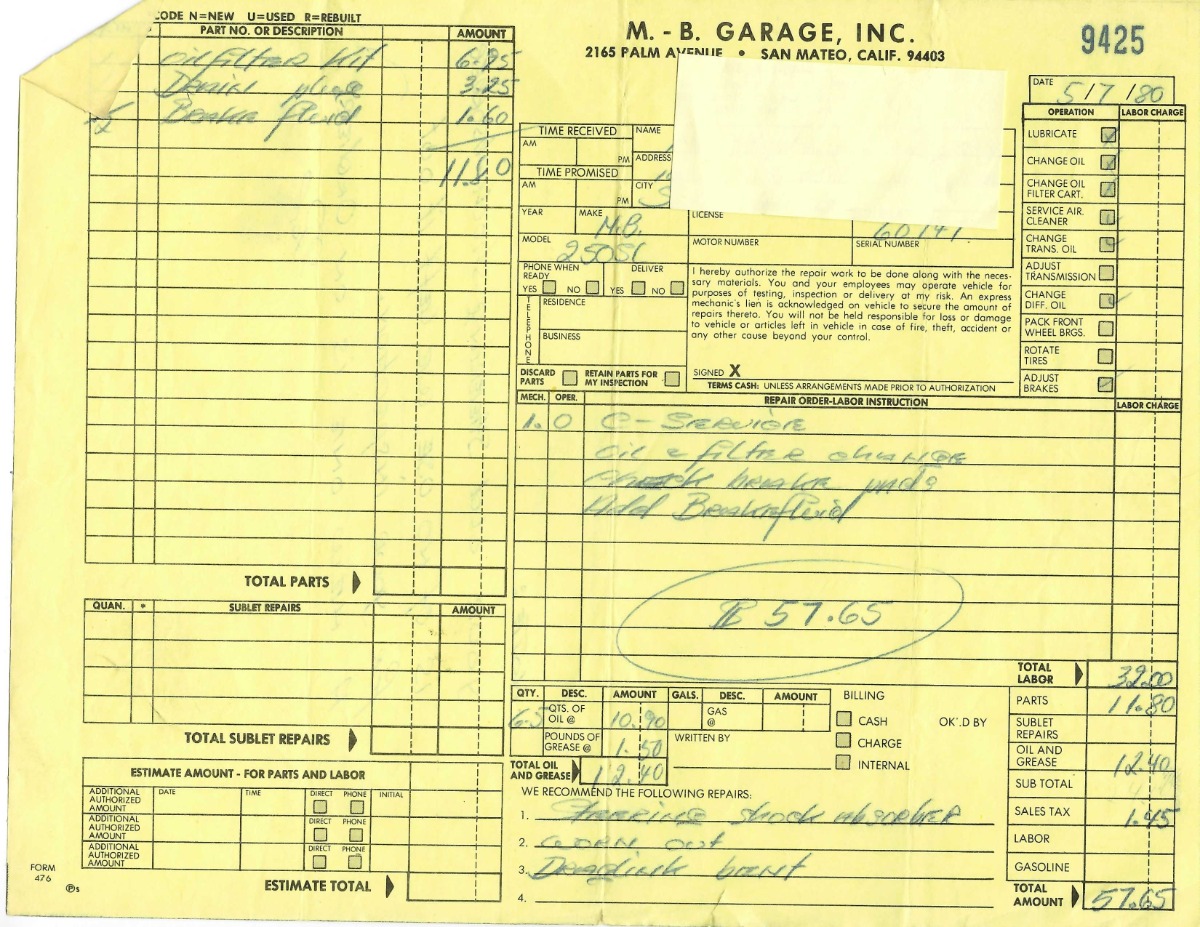 CODE N=NEW U=USED R=REBUILT
PART NO. OR DESCRIPTION AMOUNT
Oil filter Kit 6.95
Drain plug 3.25
Brake fluid 1.60
11.80
TOTAL PARTS
QUAN. * SUBLET REPAIRS AMOUNT
TOTAL SUBLET REPAIRS
ESTIMATE AMOUNT - FOR PARTS AND LABOR
ADDITIONAL AUTHORIZED AMOUNT DATE TIME DIRECT PHONE INITIAL
ADDITIONAL AUTHORIZED AMOUNT DIRECT PHONE
ADDITIONAL AUTHORIZED AMOUNT DIRECT PHONE
ESTIMATE TOTAL
FORM 476
M. - B. GARAGE, INC.
2165 PALM AVENUE • SAN MATEO, CALIF. 94403
9425
DATE 5/7/80
TIME RECEIVED
AM PM
TIME PROMISED
AM PM
NAME
ADDRESS
CITY
YEAR MAKE M.B. LICENSE
MODEL 250SL MOTOR NUMBER SERIAL NUMBER
PHONE WHEN READY DELIVER
YES NO YES NO
TELEPHONE
RESIDENCE
BUSINESS
I hereby authorize the repair work to be done along with the neces-
sary materials. You and your employees may operate vehicle for
purposes of testing, inspection or delivery at my risk. An express
mechanic's lien is acknowledged on vehicle to secure the amount of
repairs thereto. You will not be held responsible for loss or damage
to vehicle or articles left in vehicle in case of fire, theft, accident or
any other cause beyond your control.
DISCARD PARTS RETAIN PARTS FOR MY INSPECTION
SIGNED X
TERMS CASH: UNLESS ARRANGEMENTS MADE PRIOR TO AUTHORIZATION
OPERATION LABOR CHARGE
LUBRICATE
CHANGE OIL
CHANGE OIL FILTER CART.
SERVICE AIR. CLEANER
CHANGE TRANS. OIL
ADJUST TRANSMISSION
CHANGE DIFF. OIL
PACK FRONT WHEEL BRGS.
ROTATE TIRES
ADJUST BRAKES
MECH. OPER. REPAIR ORDER-LABOR INSTRUCTION LABOR CHARGE
1. 0 C-Service
oil & filter change
check brake pads
Add Brakefluid
57.65
QTY. DESC. AMOUNT GALS. DESC. AMOUNT
6.5 QTS. OF OIL @ 10.90 GAS @
POUNDS OF GREASE @ 1.50 WRITTEN BY
TOTAL OIL AND GREASE 12.40
BILLING
CASH OK'D BY
CHARGE
INTERNAL
WE RECOMMEND THE FOLLOWING REPAIRS:
1. Steering shock absorber
2. worn out
3. Draglink bent
4.
TOTAL LABOR 32.00
PARTS 11.80
SUBLET REPAIRS
OIL AND GREASE 12.40
SUB TOTAL
SALES TAX 1.45
LABOR
GASOLINE
TOTAL AMOUNT 57.65